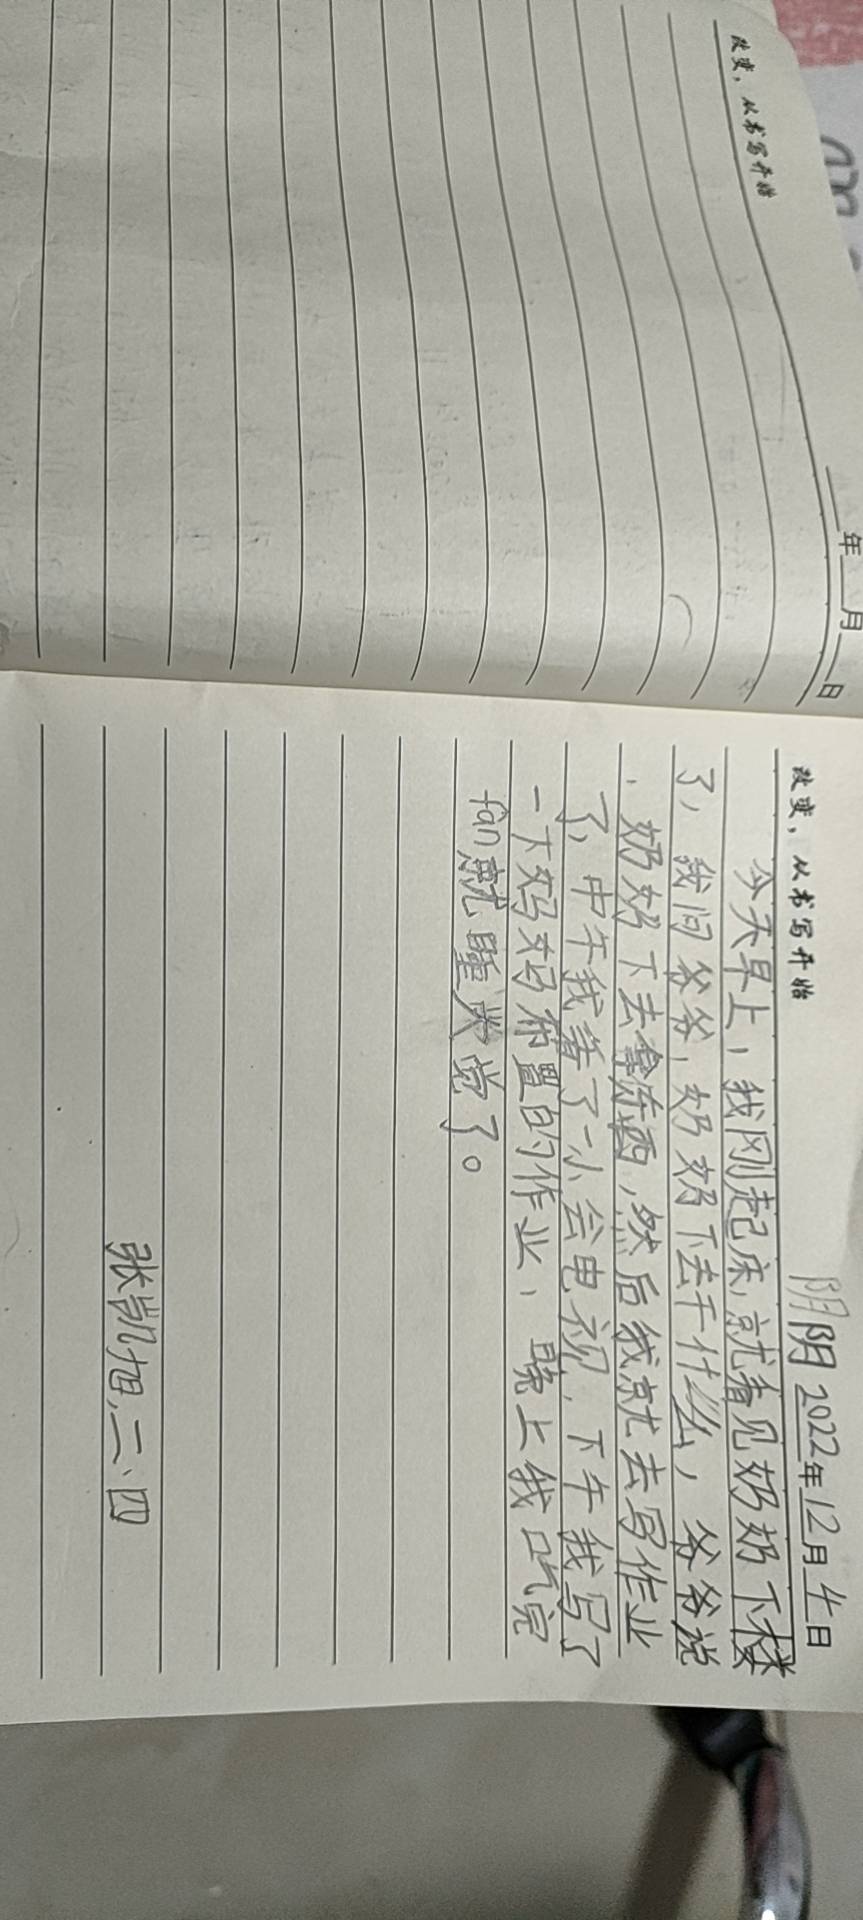 改变，从书写开始
年 月 日
改变，从书写开始
阴 阴 2022年12月4日
今天早上，我刚起床，就看见奶奶下楼
了，我问爷爷，奶奶下去干什么，爷爷说
，奶奶下去拿东西，然后我就去写作业
了，中午我看了一小会电视，下午我写了
一下妈妈布置的作业，晚上我吃完
fan就睡觉了。
张凯旭，二、四